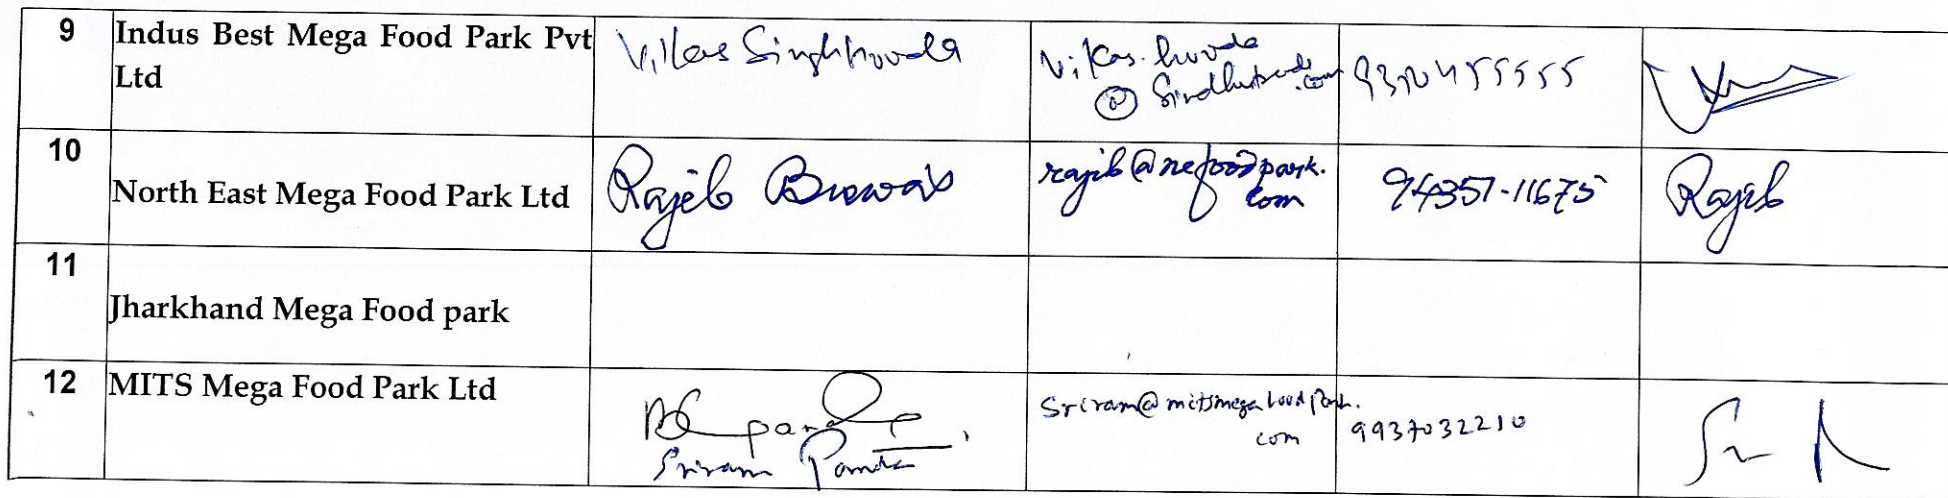 9 Indus Best Mega Food Park Pvt
Ltd
Vikas Singh hooda
Vikas.hooda
@
.com
10
North East Mega Food Park Ltd
Rajib Biswas
rajib@nefoodpark.
com
94351-11675
Rajib
11
Jharkhand Mega Food park
12 MITS Mega Food Park Ltd
panda
Sriram Panda
Sriram@mitsmegafoodpark.
com
9937032210